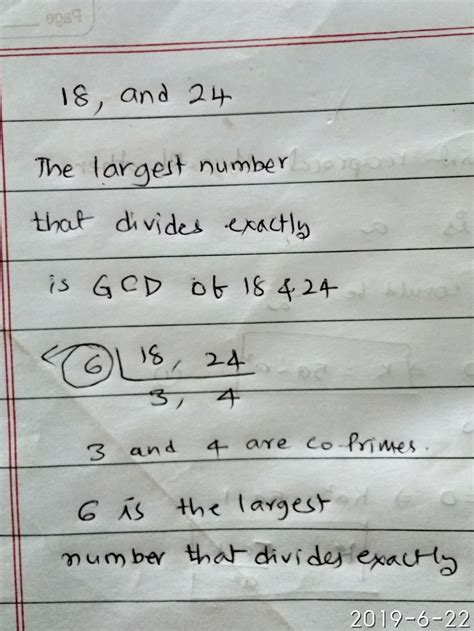 Page
18, and 24
The largest number
that divides exactly
is GCD of 18 & 24
6 18, 24
3, 4
3 and 4 are co-Primes.
6 is the largest
number that divides exactly
2019-6-22